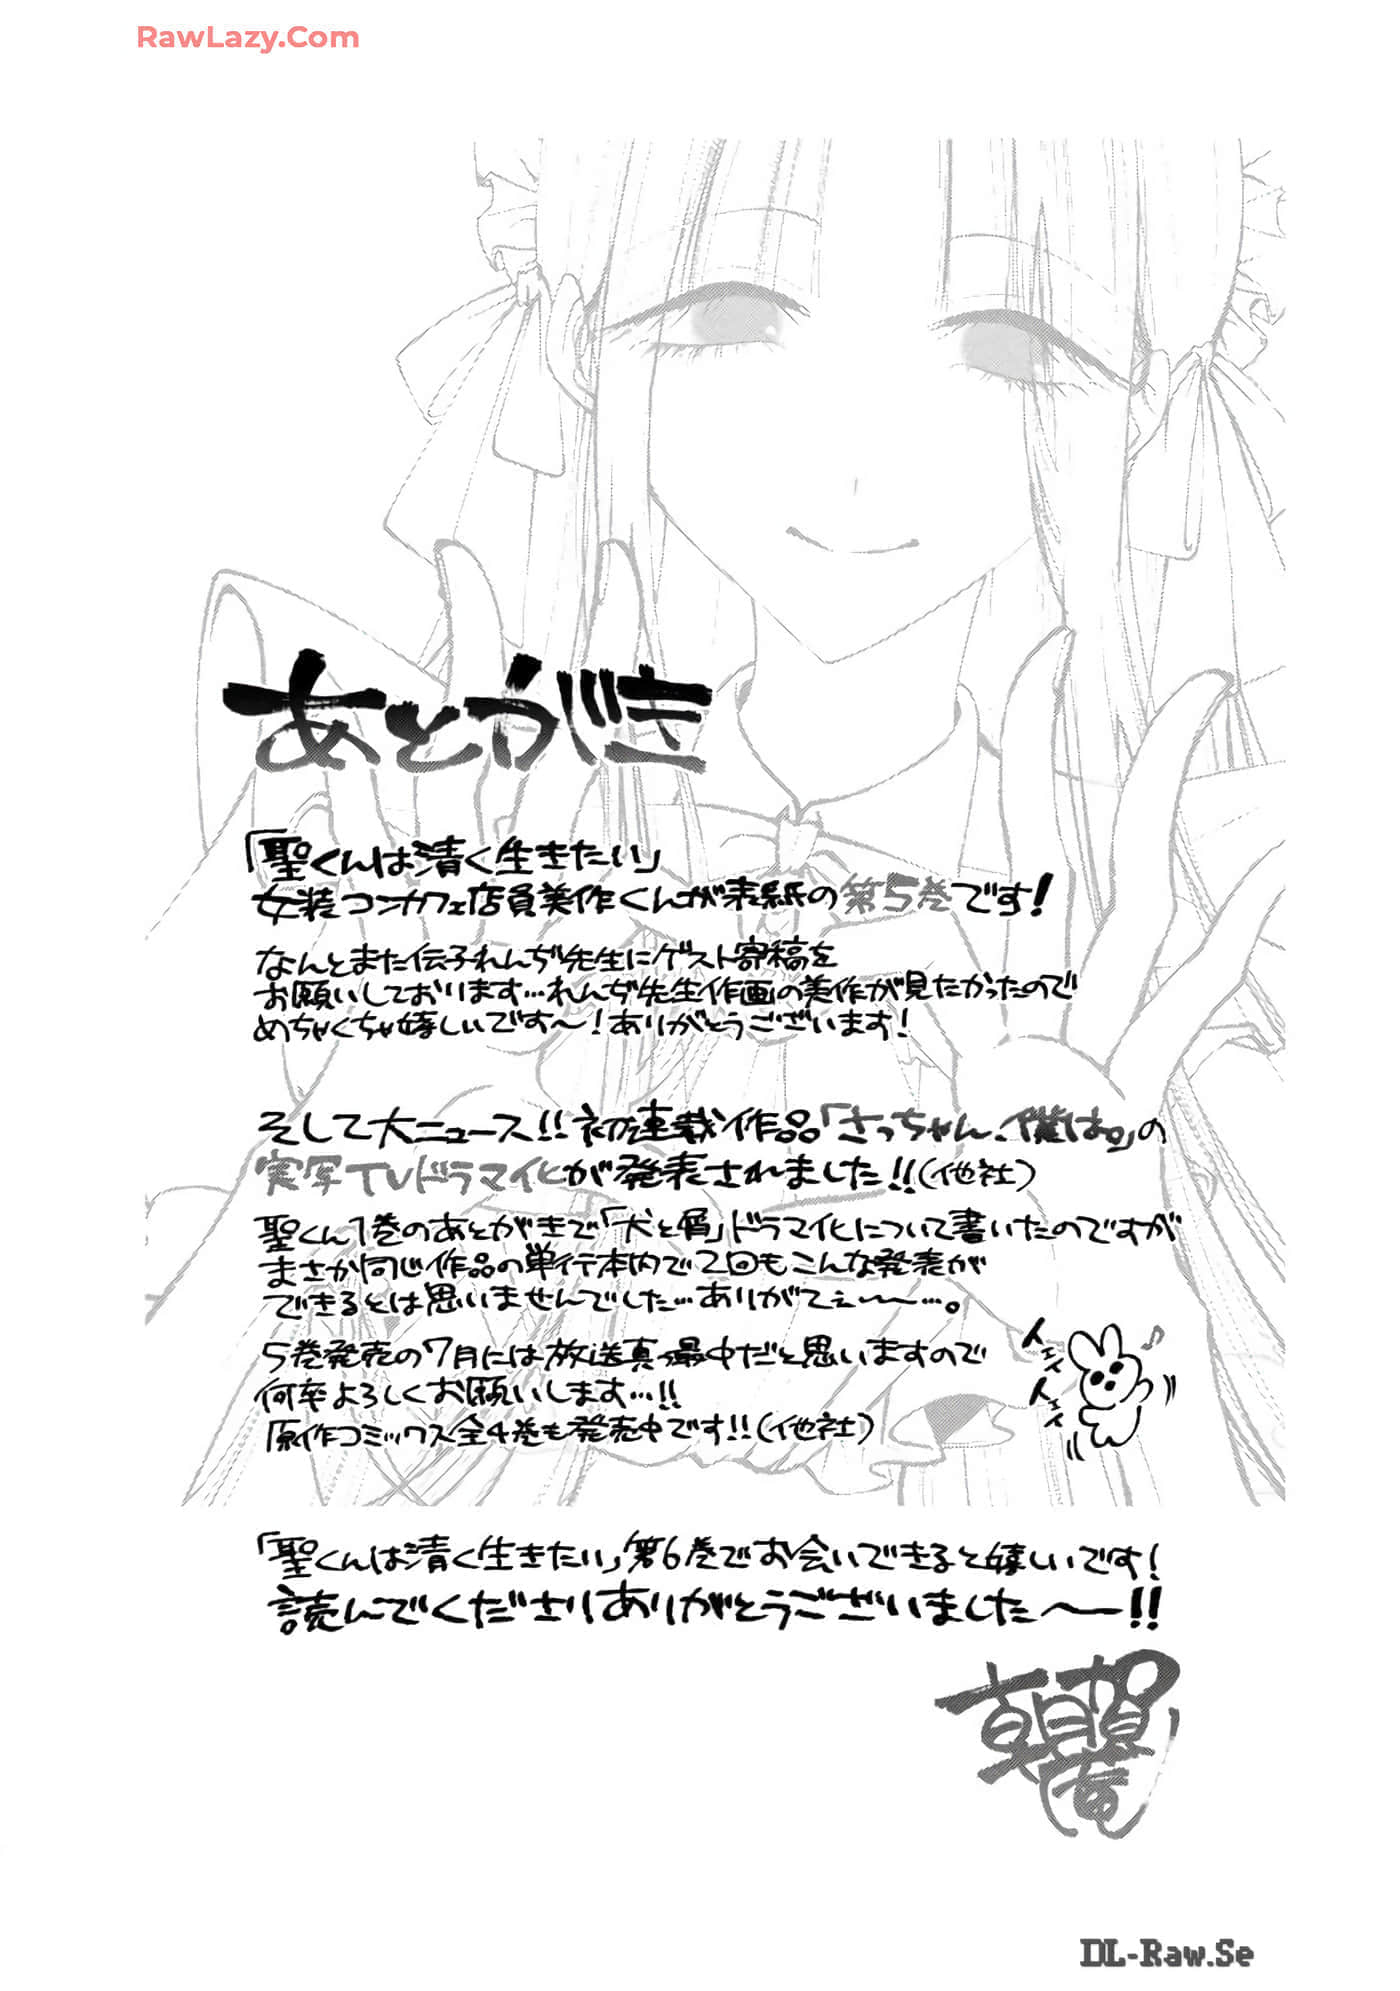 RawLazy.Com
あとがき
「聖くんは清く生きたい」
女装コンカフェ店員美作くんが表紙の第5巻です!
なんとまた伝子れんぢ先生にゲスト寄稿を
お願いしております…れんぢ先生作画の美作が見たかったので
めちゃくちゃ嬉しいです〜!ありがとうございます!
そして大ニュース!!初連載作品「さっちゃん、僕は。」の
実写TVドラマ化が発表されました!!(他社)
聖くん1巻のあとがきで「犬と屑」ドラマ化について書いたのですが
まさか同じ作品の単行本内で2回もこんな発表が
できるとは思いませんでした…ありがてぇ〜〜…。
5巻発売の7月には放送真っ最中だと思いますので
何卒よろしくお願いします…!!
原作コミックス全4巻も発売中です!!(他社)
イェイ
イェイ
「聖くんは清く生きたい」第6巻でお会いできると嬉しいです!
読んでくださりありがとうございました〜!!
朝賀庵
DL-Raw.Se